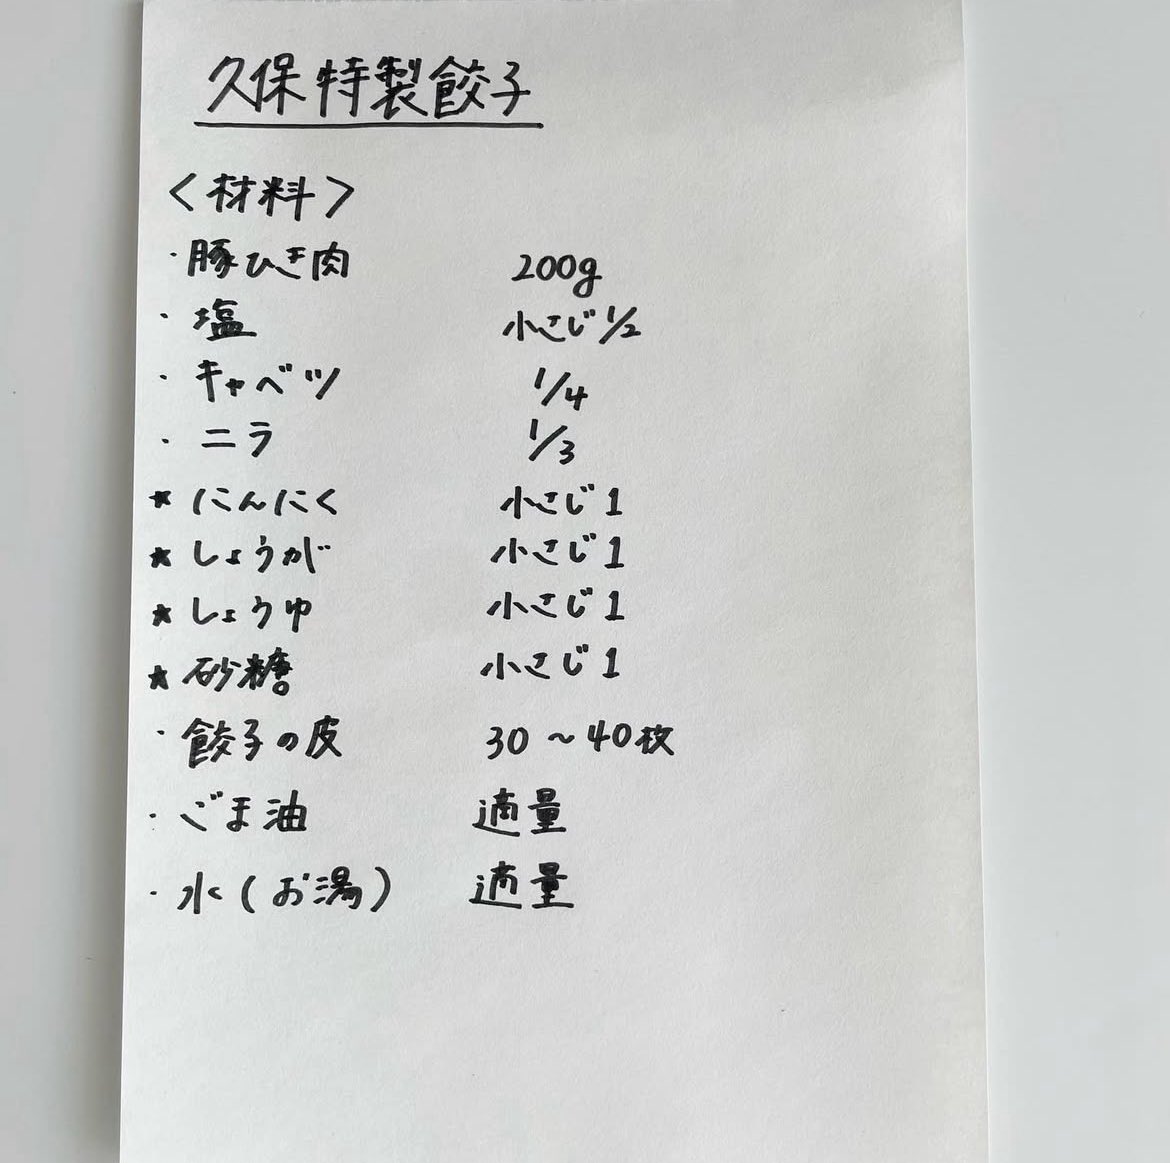 久保特製餃子
〈材料〉
・豚ひき肉 200g
・塩 小さじ1/2
・キャベツ 1/4
・ニラ 1/3
★にんにく 小さじ1
★しょうが 小さじ1
★しょうゆ 小さじ1
★砂糖 小さじ1
・餃子の皮 30〜40枚
・ごま油 適量
・水(お湯) 適量